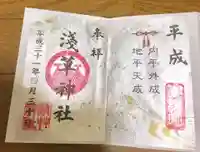 平成
内平外成
地平天成
奉拝
浅草神社
平成三十一年四月三